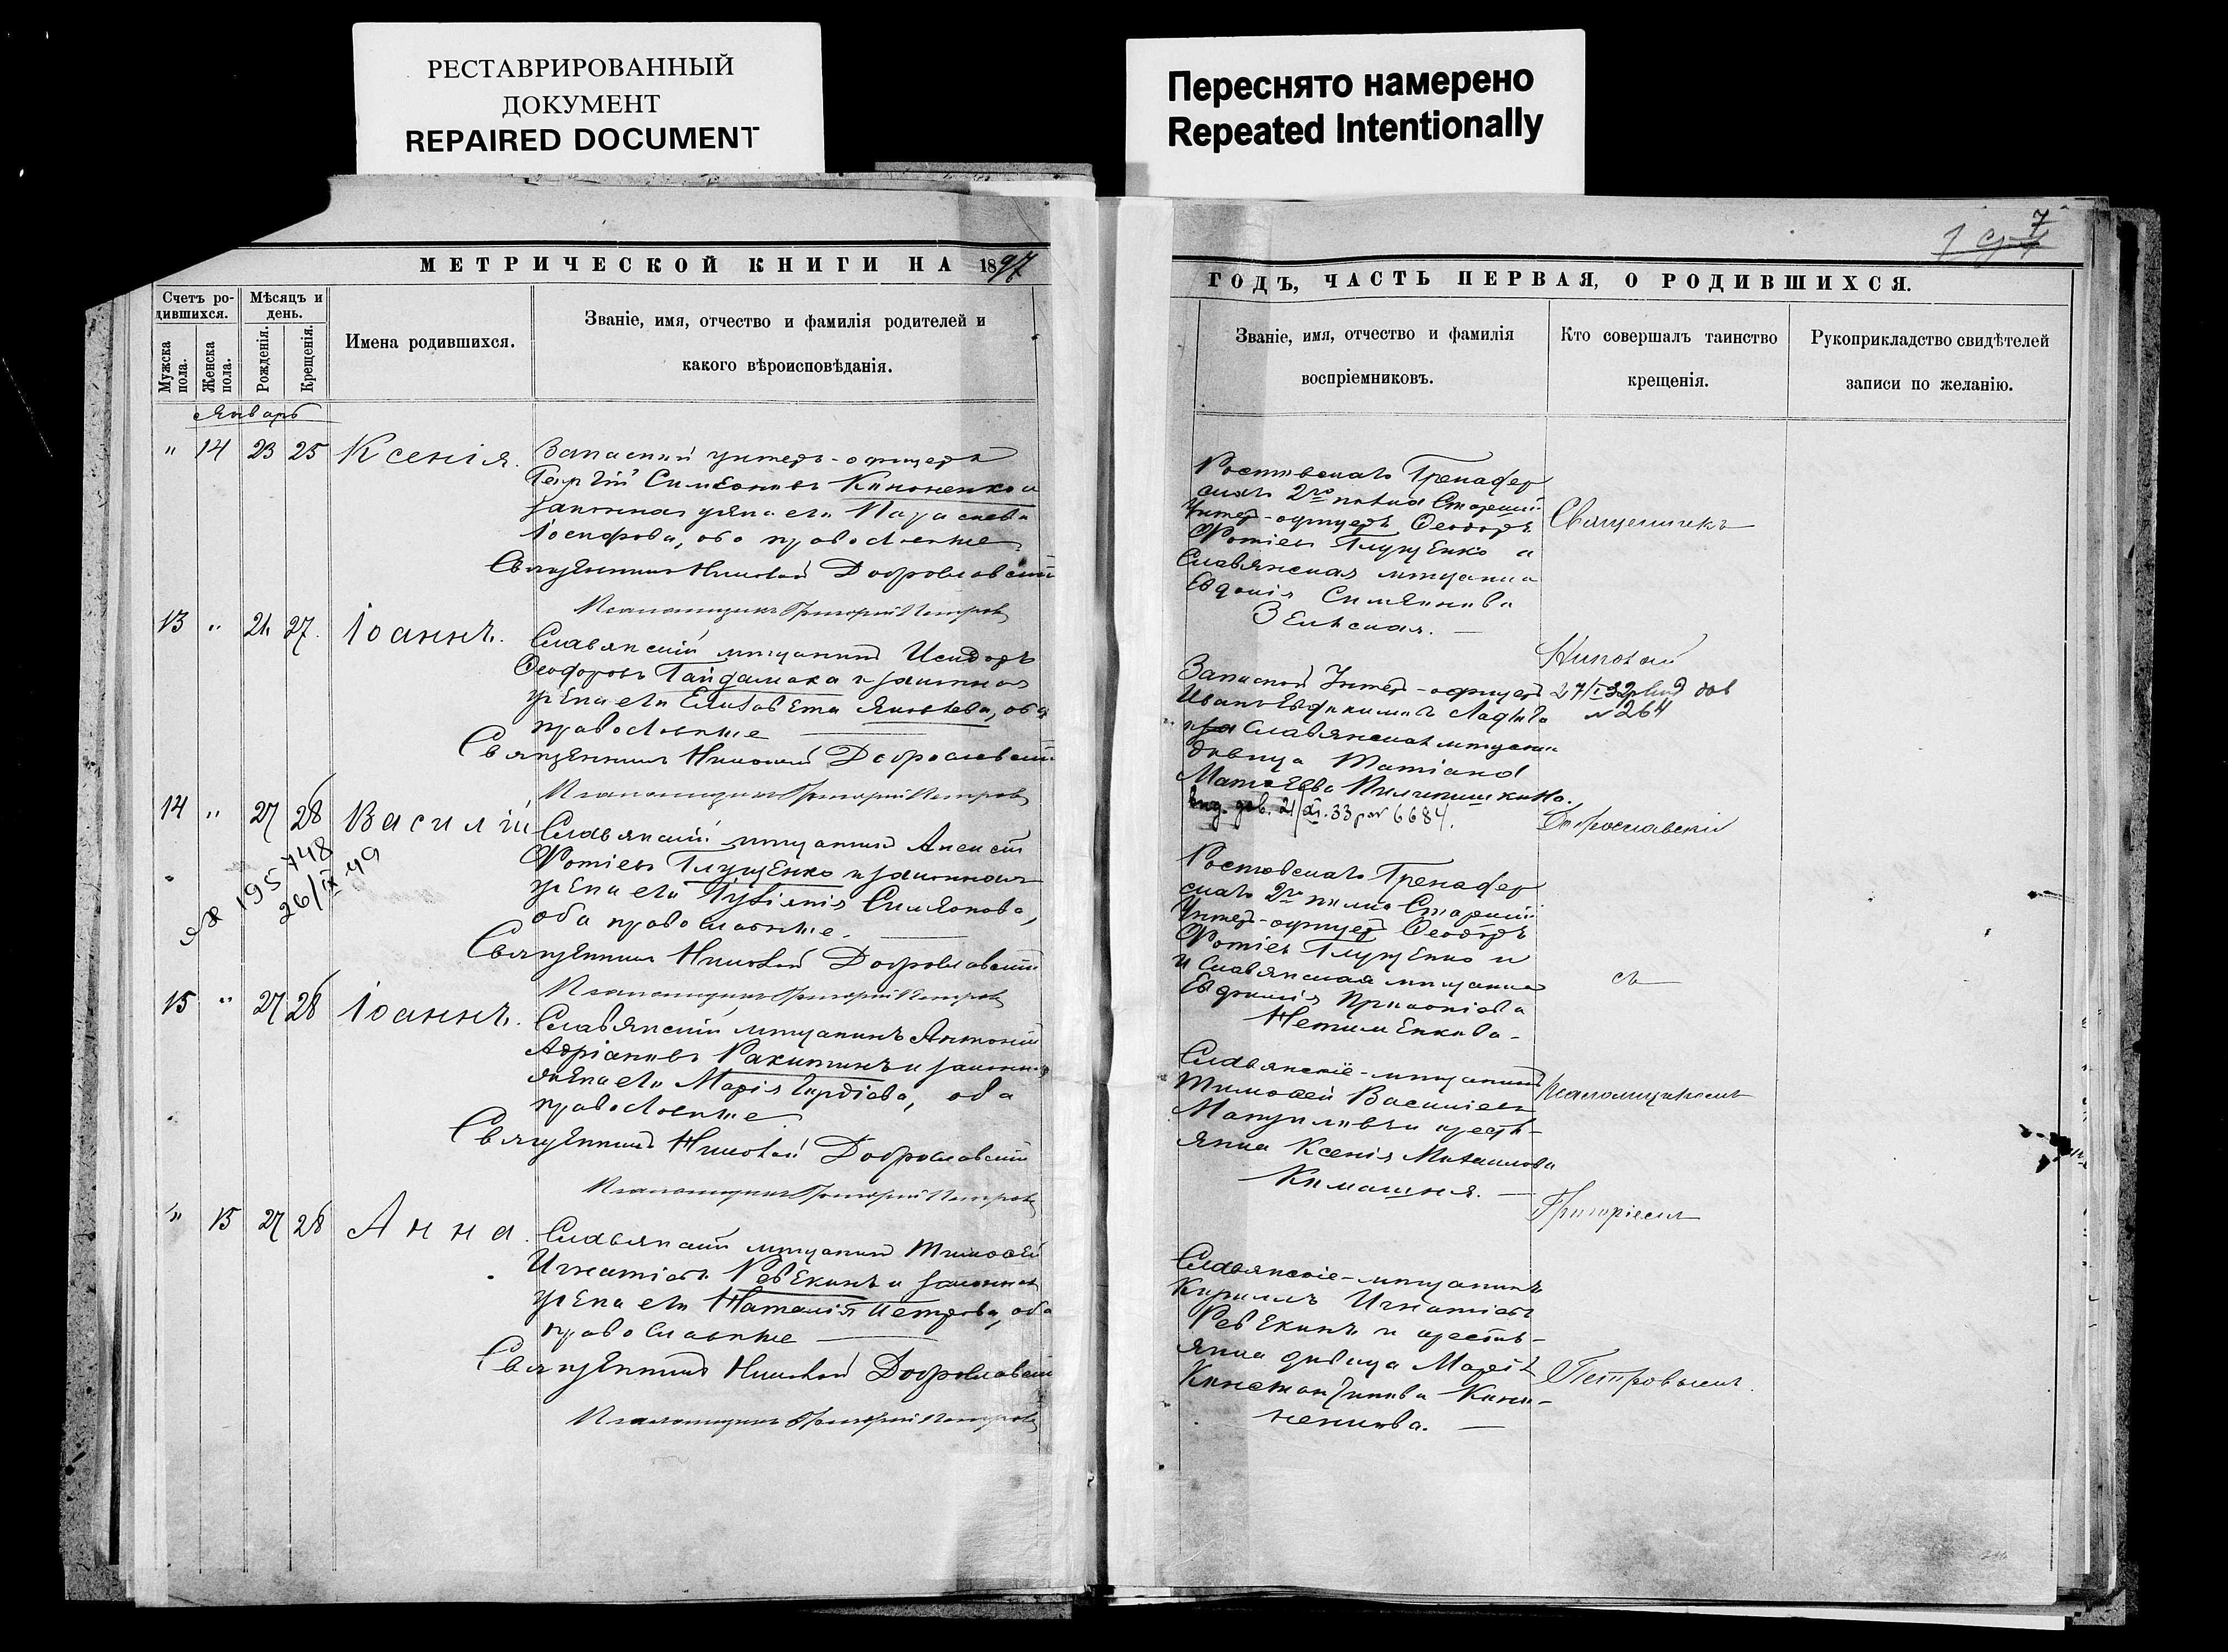 РЕСТАВРИРОВАННЫЙ
ДОКУМЕНТ
REPAIRED DOCUMENT
Переснято намерено
Repeated Intentionally
7
МЕТРИЧЕСКОЙ КНИГИ НА 1897
Счетъ ро-
дившихся.
Мужска
пола.
Женска
пола.
Мѣсяцъ и
день.
Рожденія.
Крещенія.
Имена родившихся.
Званіе, имя, отчество и фамилія родителей и
какого вѣроисповѣданія.
Январь
" 14 23 25 Ксенія.
Запасный унтеръ-офицеръ
Георгій Симеоновъ Кононенко и
законная жена его Параскева
Іосифова, оба православные
Священникъ Николай Доброславскій
Псаломщикъ Григорій Петровъ
13 " 21 27. Іоаннъ.
Славянскій мѣщанинъ Исидоръ
Ѳеодоровъ Гайдамака и законная
жена его Елисавета Яковлева, оба
православные
Священникъ Николай Доброславскій
Псаломщикъ Григорій Петровъ
14 " 27 28 Василій
Славянскій мѣщанинъ Алексій
Фотіевъ Глущенко и законная
жена его Гликерія Симеонова,
оба православные.
Священникъ Николай Доброславскій
Псаломщикъ Григорій Петровъ
195748
26/IX 49
15 " 27 28 Іоаннъ.
Славянскій мѣщанинъ Антоній
Адріановъ Ракитинъ и законная
жена его Марія Гордіева, оба
православные
Священникъ Николай Доброславскій
Псаломщикъ Григорій Петровъ
" 15 27 28 Анна.
Славянскій мѣщанинъ Тимоѳей
Игнатіевъ Ревекинъ и законная
жена его Наталія Петрова, оба
православные
Священникъ Николай Доброславскій
Псаломщикъ Григорій Петровъ
ГОДЪ, ЧАСТЬ ПЕРВАЯ, О РОДИВШИХСЯ.
Званіе, имя, отчество и фамилія
воспріемниковъ.
Кто совершалъ таинство
крещенія.
Рукоприкладство свидѣтелей
записи по желанію.
Ростовскаго Гренадер
скаго 2го полка Старшій
Унтеръ-офицеръ Ѳеодоръ
Фотіевъ Глущенко и
Славянская мѣщанка
Евдокія Симеонова
Зеленская.
Священникъ
Николай
Запасной Унтеръ-офицеръ
Иванъ Евфимовъ
и Славянская мѣщанка
дѣвица Татіана
Матвѣева
выд. дов. 21/XI.33 р № 6684.
27/I 32 выд дов
№ 264
Доброславскій
Ростовскаго Гренадер
скаго 2го полка Старшій
Унтеръ-офицеръ Ѳеодоръ
Фотіевъ Глущенко и
и Славянская мѣщанка
Евфимія Прокопіева
съ
Славянскіе-мѣщанинъ
Тимоѳей Василіевъ
и кресть-
янка Ксенія Михаилова
Псаломщикомъ
Григоріемъ
Славянскіе-мѣщанинъ
Кириллъ Игнатіевъ
Ревекинъ и кресть-
янка дѣвица Марія
Константинова Коно-
ненкова.
Петровымъ.